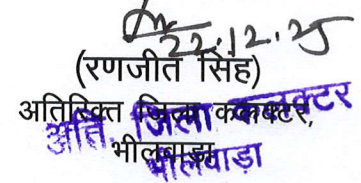 22.12.25
(रणजीत सिंह)
अतिरिक्त जिला कलक्टर,
अति. जिला कलक्टर
भीलवाड़ा
भीलवाड़ा